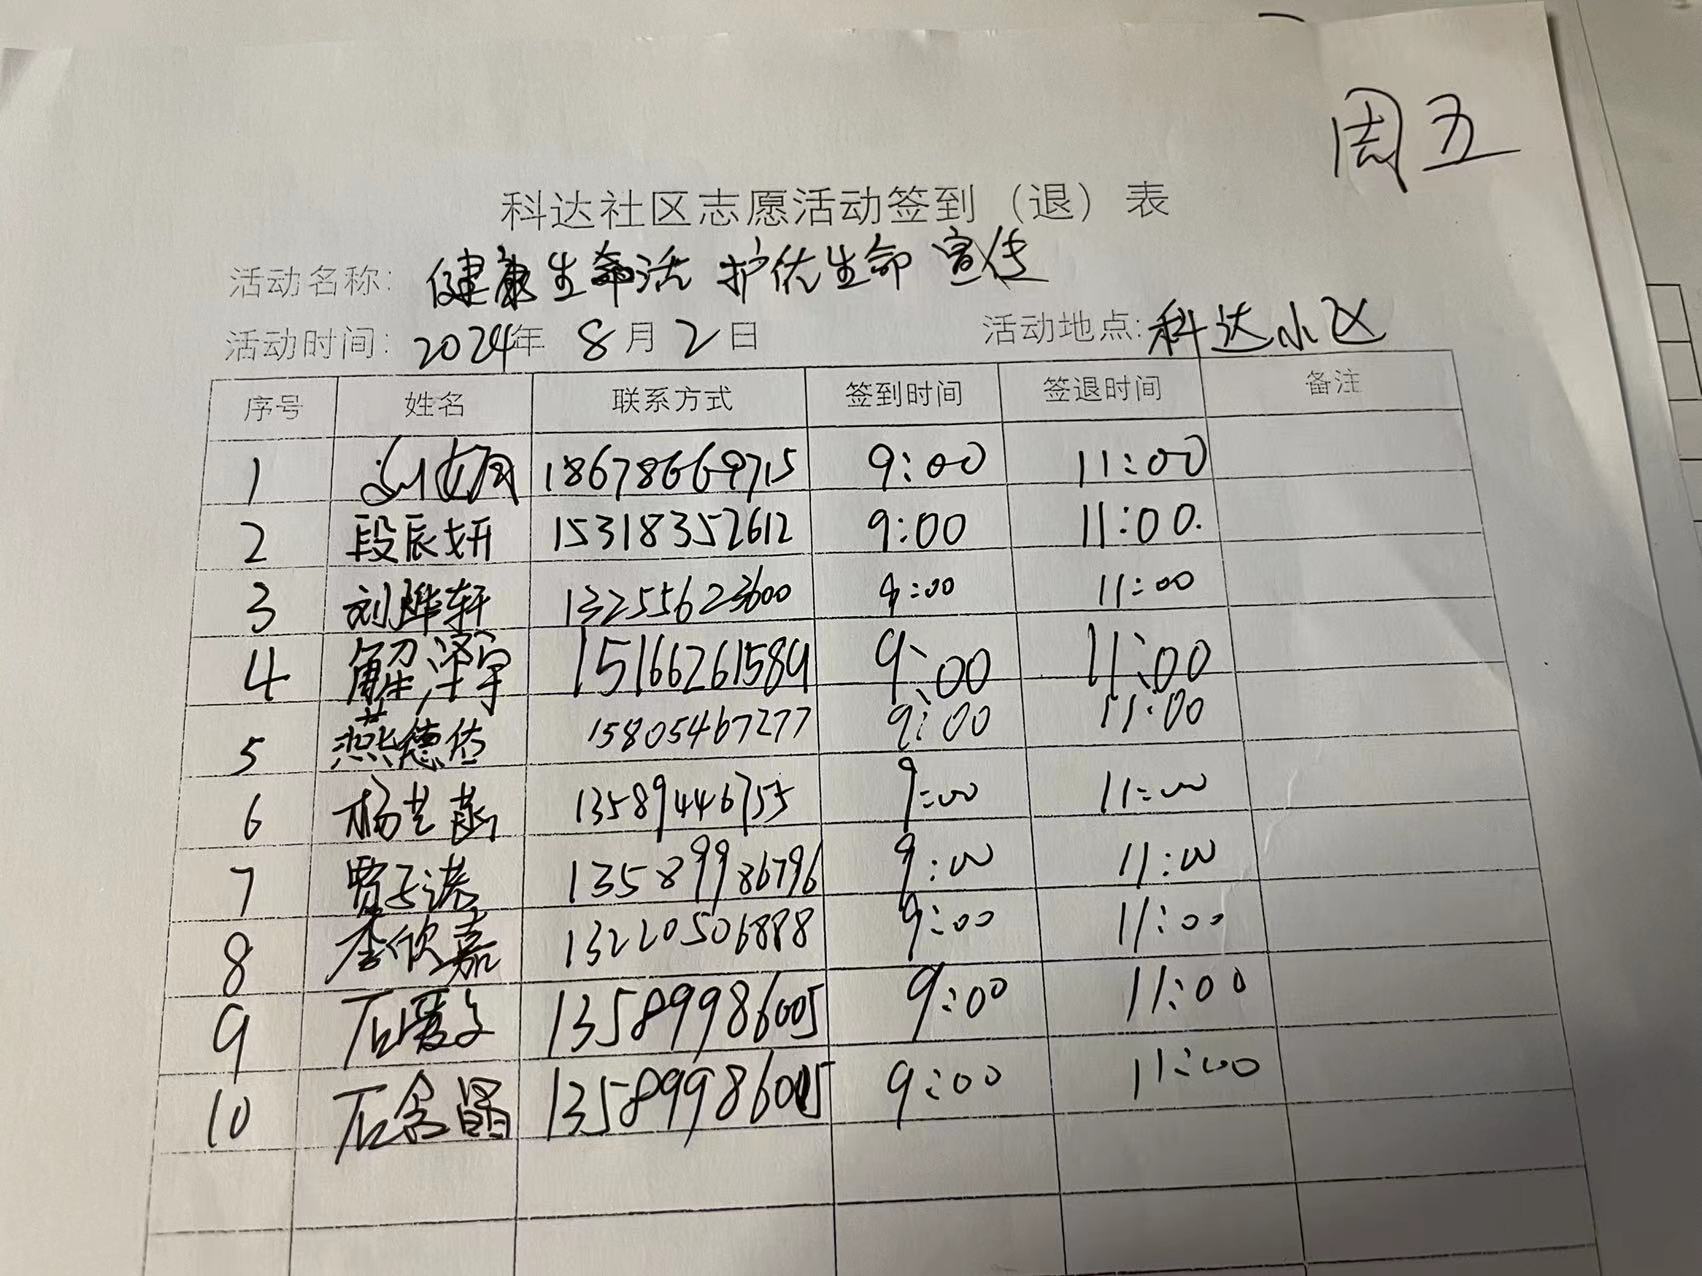 周五
科达社区志愿活动签到（退）表
活动名称: 健康生活 护佑生命 宣传
活动时间: 2024年 8月2日 活动地点: 科达小区
序号 姓名 联系方式 签到时间 签退时间 备注
1 18678669715 9:00 11:00
2 段辰妍 15318352612 9:00 11:00.
3 刘烨轩 13255623600 9:00 11:00
4 解泽宇 15166261589 9:00 11:00
5 燕德佑 15805467277 9:00 11:00
6 杨艺菡 13589446755 9:00 11:00
7 贾子诺 13589986796 9:00 11:00
8 李欣嘉 13220506888 9:00 11:00
9 石爱文 13589986005 9:00 11:00
10 石含 13589986005 9:00 11:00